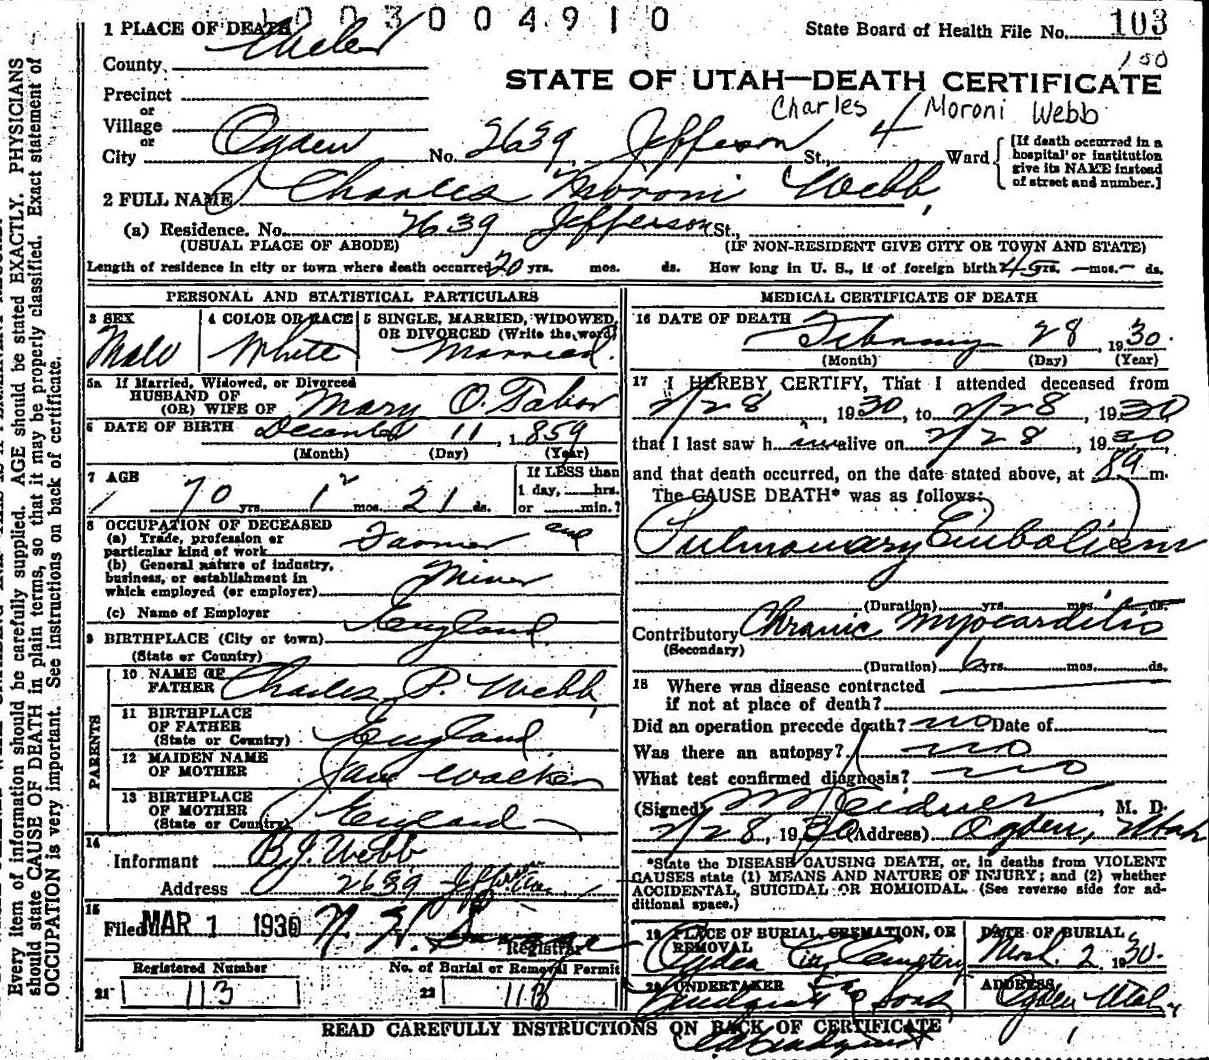 003004910
1 PLACE OF DEATH
State Board of Health File No. 103
County Weber
150
STATE OF UTAH—DEATH CERTIFICATE
Precinct
Charles Moroni Webb
or
Village
or
City Ogden No. 2639 Jefferson St., 4 Ward
[If death occurred in a hospital or institution give its NAME instead of street and number.]
2 FULL NAME Charles Moroni Webb,
(a) Residence. No. 2639 Jefferson St.,
(USUAL PLACE OF ABODE) (IF NON-RESIDENT GIVE CITY OR TOWN AND STATE)
Length of residence in city or town where death occurred 20 yrs. mos. ds. How long in U. S., if of foreign birth? 45 yrs. — mos. — ds.
PERSONAL AND STATISTICAL PARTICULARS
3 SEX
Male
4 COLOR OR RACE
White
5 SINGLE, MARRIED, WIDOWED, OR DIVORCED (Write the word)
Married.
5a If Married, Widowed, or Divorced
HUSBAND OF
(OR) WIFE OF Mary O. Tabor
6 DATE OF BIRTH December 11, 1859
(Month) (Day) (Year)
7 AGE
70 yrs. 1 2 mos. 21 ds.
If LESS than
1 day, hrs.
or min.?
8 OCCUPATION OF DECEASED
(a) Trade, profession or
particular kind of work Farmer and
(b) General nature of industry,
business, or establishment in
which employed (or employer) Miner
(c) Name of Employer
9 BIRTHPLACE (City or town) England
(State or Country)
PARENTS
10 NAME OF
FATHER Charles P. Webb,
11 BIRTHPLACE
OF FATHER
(State or Country) England
12 MAIDEN NAME
OF MOTHER Jane Walker
13 BIRTHPLACE
OF MOTHER
(State or Country) England
14
Informant B. J. Webb
Address 2639 Jefferson Ave.
15
Filed MAR 1 1930
Registrar
Registered Number
21 113
No. of Burial or Removal Permit
22 113
MEDICAL CERTIFICATE OF DEATH
16 DATE OF DEATH
February 28 1930.
(Month) (Day) (Year)
17 I HEREBY CERTIFY, That I attended deceased from
2/28, 1930, to 2/28, 1930
that I last saw him alive on 2/28, 1930,
and that death occurred, on the date stated above, at m.
The CAUSE DEATH* was as follows:
Pulmonary Embolism
(Duration) yrs. mos. ds.
Contributory Chronic Myocarditis
(Secondary)
(Duration) 6 yrs. mos. ds.
18 Where was disease contracted
if not at place of death?
Did an operation precede death? no Date of
Was there an autopsy? no
What test confirmed diagnosis? no
(Signed) M. D.
2/28, 1930 (Address) Ogden, Utah
*State the DISEASE CAUSING DEATH, or, in deaths from VIOLENT
CAUSES state (1) MEANS AND NATURE OF INJURY; and (2) whether
ACCIDENTAL, SUICIDAL OR HOMICIDAL. (See reverse side for ad-
ditional space.)
19 PLACE OF BURIAL, CREMATION, OR
REMOVAL
Ogden City Cemetery
DATE OF BURIAL
Mch. 2 1930.
20 UNDERTAKER
Sons
ADDRESS
Ogden Utah
READ CAREFULLY INSTRUCTIONS ON BACK OF CERTIFICATE
Every item of information should be carefully supplied. AGE should be stated EXACTLY. PHYSICIANS
should state CAUSE OF DEATH in plain terms, so that it may be properly classified. Exact statement of
OCCUPATION is very important. See instructions on back of certificate.